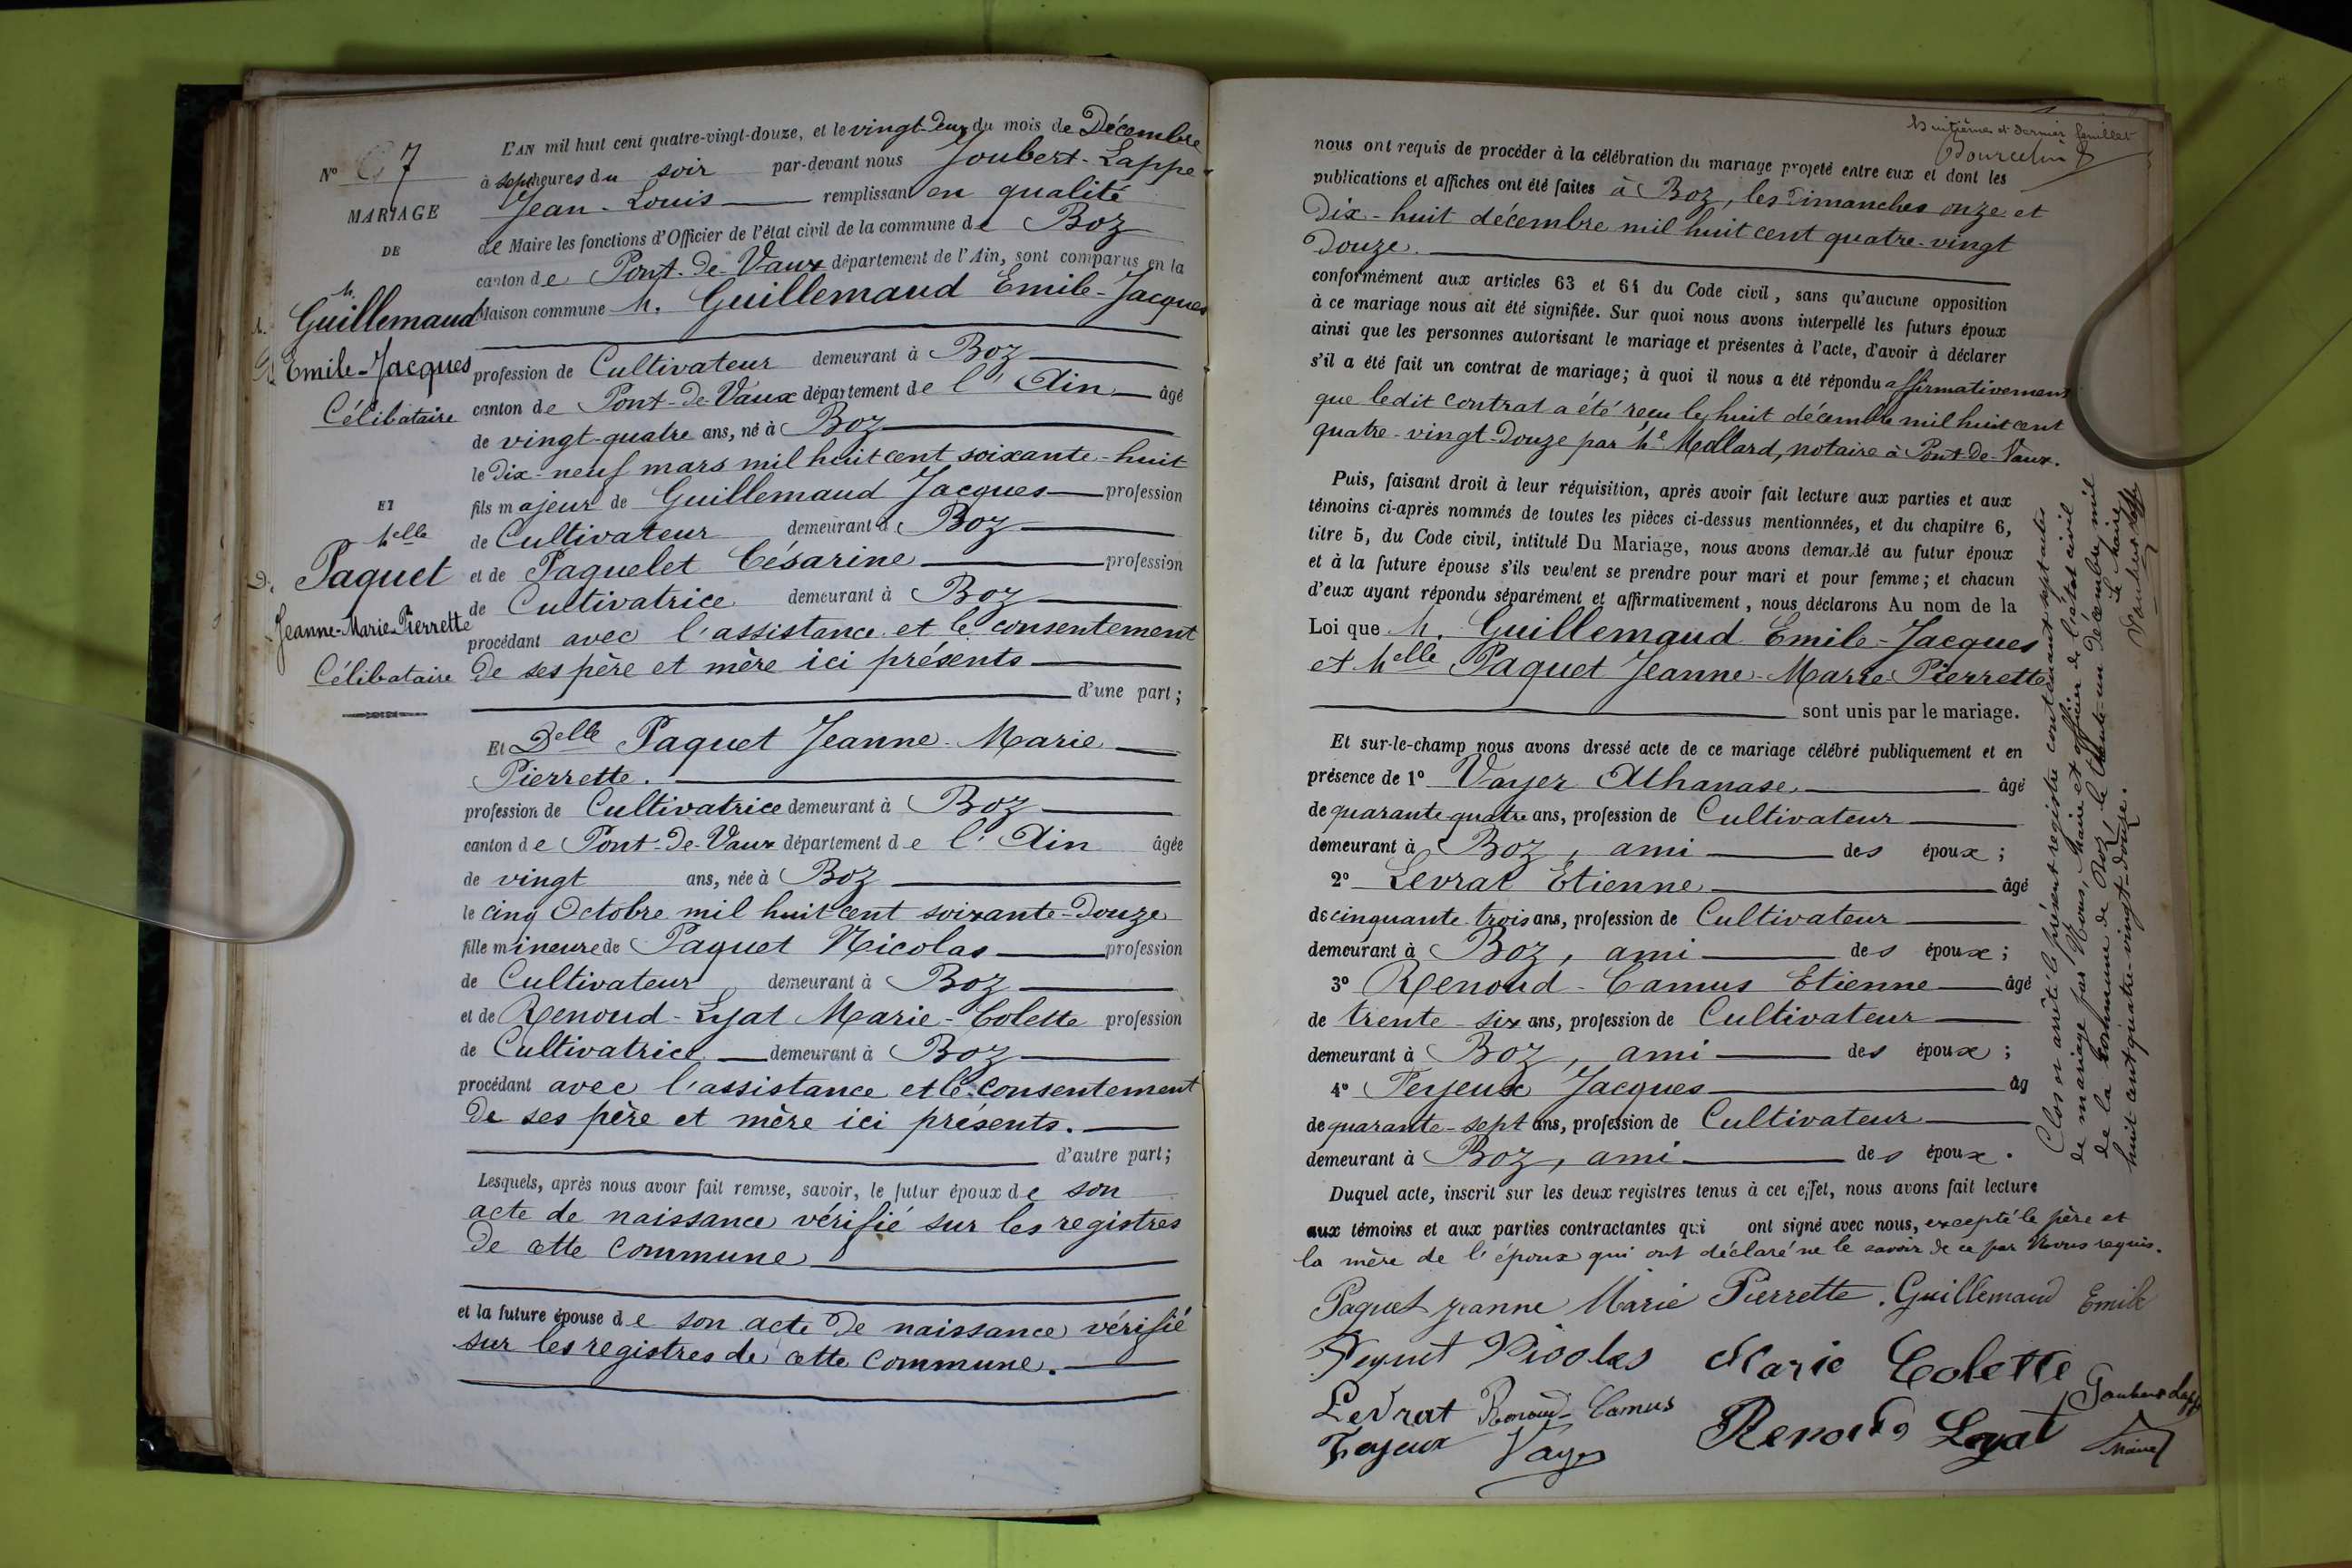 N° 7
MARIAGE
DE
M.
Guillemaud
Emile-Jacques
Célibataire
ET
Melle
Paquet
Jeanne-Marie-Pierrette
Célibataire
L'AN mil huit cent quatre-vingt-douze, et le vingt-deux du mois de Décembre
à sept heures du soir par-devant nous Joubert-Lappe
Jean-Louis remplissant en qualité
de Maire les fonctions d'Officier de l'état civil de la commune de Boz
canton de Pont-de-Vaux département de l'Ain, sont comparus en la
Maison commune M. Guillemaud Emile-Jacques
profession de Cultivateur demeurant à Boz
canton de Pont-de-Vaux département de l'Ain âgé
de vingt-quatre ans, né à Boz
le dix-neuf mars mil huit cent soixante-huit
fils majeur de Guillemaud Jacques profession
de Cultivateur demeurant à Boz
et de Paquelet Césarine profession
de Cultivatrice demeurant à Boz
procédant avec l'assistance et le consentement
de ses père et mère ici présents
d'une part;
Et Delle Paquet Jeanne-Marie
Pierrette.
profession de Cultivatrice demeurant à Boz
canton de Pont-de-Vaux département de l'Ain âgée
de vingt ans, née à Boz
le cinq Octobre mil huit cent soixante-douze
fille mineure de Paquet Nicolas profession
de Cultivateur demeurant à Boz
et de Renoud-Lyat Marie-Colette profession
de Cultivatrice demeurant à Boz
procédant avec l'assistance et le consentement
de ses père et mère ici présents.
d'autre part;
Lesquels, après nous avoir fait remise, savoir, le futur époux de son
acte de naissance vérifié sur les registres
de cette commune
et la future épouse de son acte de naissance vérifié
sur les registres de cette commune.
huitième et dernier feuillet
nous ont requis de procéder à la célébration du mariage projeté entre eux et dont les
publications et affiches ont été faites à Boz, les dimanches onze et
dix-huit décembre mil huit cent quatre-vingt
douze.
conformément aux articles 63 et 64 du Code civil, sans qu'aucune opposition
à ce mariage nous ait été signifiée. Sur quoi nous avons interpellé les futurs époux
ainsi que les personnes autorisant le mariage et présentes à l'acte, d'avoir à déclarer
s'il a été fait un contrat de mariage; à quoi il nous a été répondu affirmativement
que ledit contrat a été reçu le huit décembre mil huit cent
quatre-vingt-douze par Me Mollard, notaire à Pont-de-Vaux.
Puis, faisant droit à leur réquisition, après avoir fait lecture aux parties et aux
témoins ci-après nommés de toutes les pièces ci-dessus mentionnées, et du chapitre 6,
titre 5, du Code civil, intitulé Du Mariage, nous avons demandé au futur époux
et à la future épouse s'ils veulent se prendre pour mari et pour femme; et chacun
d'eux ayant répondu séparément et affirmativement, nous déclarons Au nom de la
Loi que M. Guillemaud Emile-Jacques
et Melle Paquet Jeanne-Marie-Pierrette
sont unis par le mariage.
Et sur-le-champ nous avons dressé acte de ce mariage célébré publiquement et en
présence de 1° Vayer Athanase âgé
de quarante quatre ans, profession de Cultivateur
demeurant à Boz, ami des époux;
2° Levrat Etienne âgé
de cinquante trois ans, profession de Cultivateur
demeurant à Boz, ami des époux;
3° Renoud-Camus Etienne âgé
de trente-six ans, profession de Cultivateur
demeurant à Boz, ami des époux;
4° Feyeux Jacques âg
de quarante-sept ans, profession de Cultivateur
demeurant à Boz, ami des époux.
Duquel acte, inscrit sur les deux registres tenus à cet effet, nous avons fait lecture
aux témoins et aux parties contractantes qui ont signé avec nous, excepté le père et
la mère de l'époux qui ont déclaré ne le savoir de ce par Nous requis.
Paquet Jeanne Marie Pierrette. Guillemaud Emile
Paquet Nicolas Marie Colette
Levrat Renoud-Camus Renoud Lyat Joubert Lappe
Feyeux Vayer Maire
Clos et arrêté le présent registre contenant sept actes
de mariage par Nous, Maire et officier de l'état civil
de la commune de Boz, le trente-un décembre mil
huit cent quatre-vingt-douze.
Le Maire
Joubert Lappe